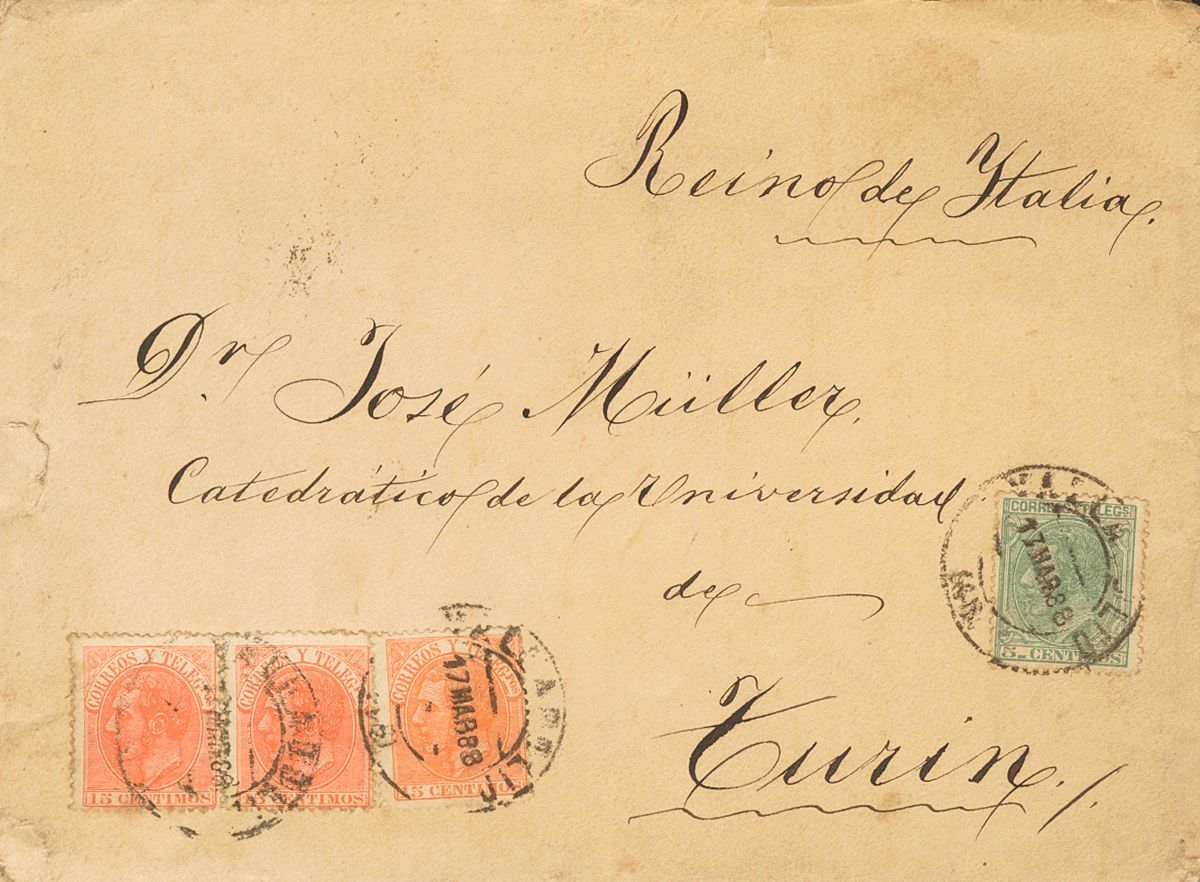 Reino de Italia.
Dr. José Müller,
Catedrático de la Universidad
de
Turin./.
CORREOS Y TELEGS
5 CENTIMOS
17 MAR 88
CORREOS Y TELEGFOS
15 CENTIMOS
CORREOS Y TELEG
15 CENTIMOS
CORREOS Y TELEGFOS
15 CENTIMOS
17 MAR 88